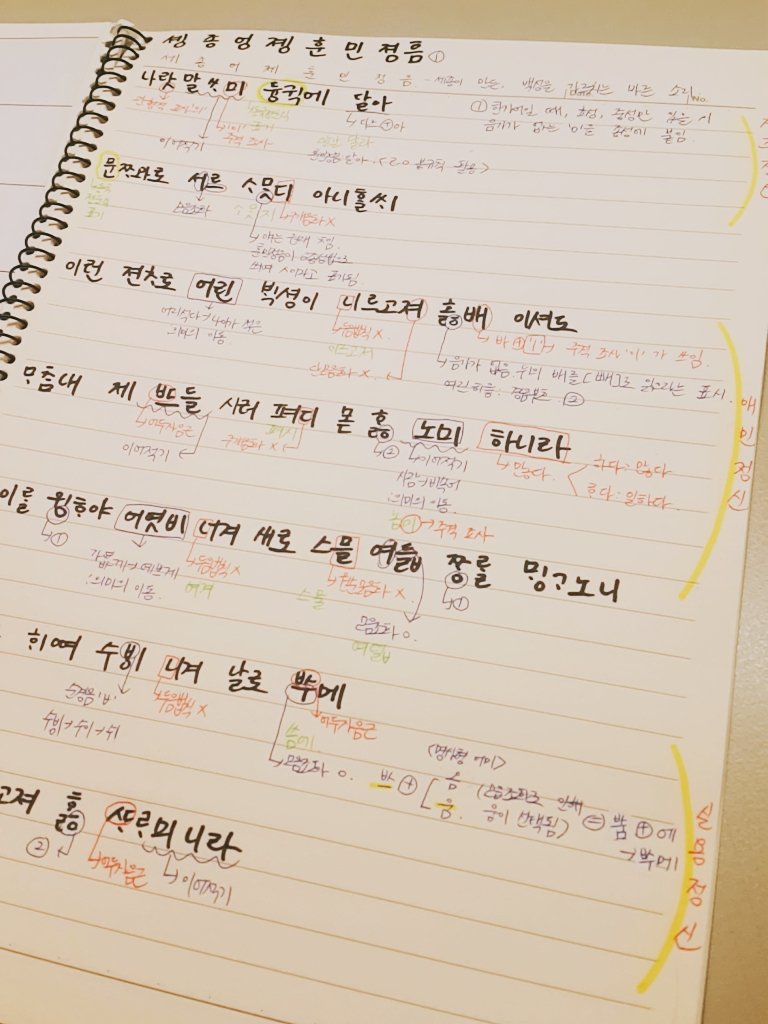 솅 종 엉 졩 훈 민 졍 음 ①
세 종 어 제 훈 민 정 음 - 세종이 만든, 백성을 가르치는 바른 소리
나랏 말ᄊᆞ미 듕귁에 달아
① 한자어일 때, 초성, 중성만 있을 시
음가가 없는 'ㅇ'을 종성에 붙임.
관형격 조사 '의'
이어적기
'이' 주격 조사
다르⊕아
<ㄹㅇ 불규칙 활용>
자주정신
문ᄍᆞᆼ와로 서르 ᄉᆞᄆᆞᆺ디 아니ᄒᆞᆯᄊᆡ
모음조화
ᄉᆞᄆᆞᆺ지
구개음화 X
이런 젼ᄎᆞ로 어린 ᄇᆡᆨ셩이 니르고져 홇 배 이셔도
어리석다→나이가 적은
의미의 이동.
두음법칙 X.
이르고져
단모음화 X.
바⊕ㅣ → 주격 조사 'ㅣ'가 쓰임.
음가가 없음. 뒤의 배를 [빼]로 읽으라는 표시.
여린히읗: 절음부호. ②
애민정신
ᄆᆞᄎᆞᆷ내 제 ᄠᅳ들 시러 펴디 몯 ᄒᆞᇙ 노미 하니라
어두자음군
이어적기
펴지
구개음화 X
②
이어적기
사람→비속어
:의미의 이동.
놈이→주격 조사
많다.
하다: 많다
ᄒᆞ다: 일하다.
이ᄅᆞᆯ 윙ᄒᆞ야 어엿비 너겨 새로 스믈 여듧 ᄍᆞᆼᄅᆞᆯ ᄆᆡᆼᄀᆞ노니
①
가엾게→예쁘게
:의미의 이동.
두음법칙 X
여겨
원순모음화 X.
스물
모음조화 O.
여덟
①
ᄒᆡ여 수ᄫᅵ 니겨 날로 ᄡᅮ메
순경음 'ㅸ'
수ᄫᅵ→수이→쉬
두음법칙 X
어두자음군
씀에.
모음조화 O.
<명사형 어미>
ᄡᅳ⊕[옴 / 움. (모음조화로 인해 움이 선택됨) = ᄡᅮᆷ⊕에
→ᄡᅮ메
고져 ᄒᆞᇙ ᄯᆞᄅᆞ미니라
②
어두자음군
이어적기
실용정신